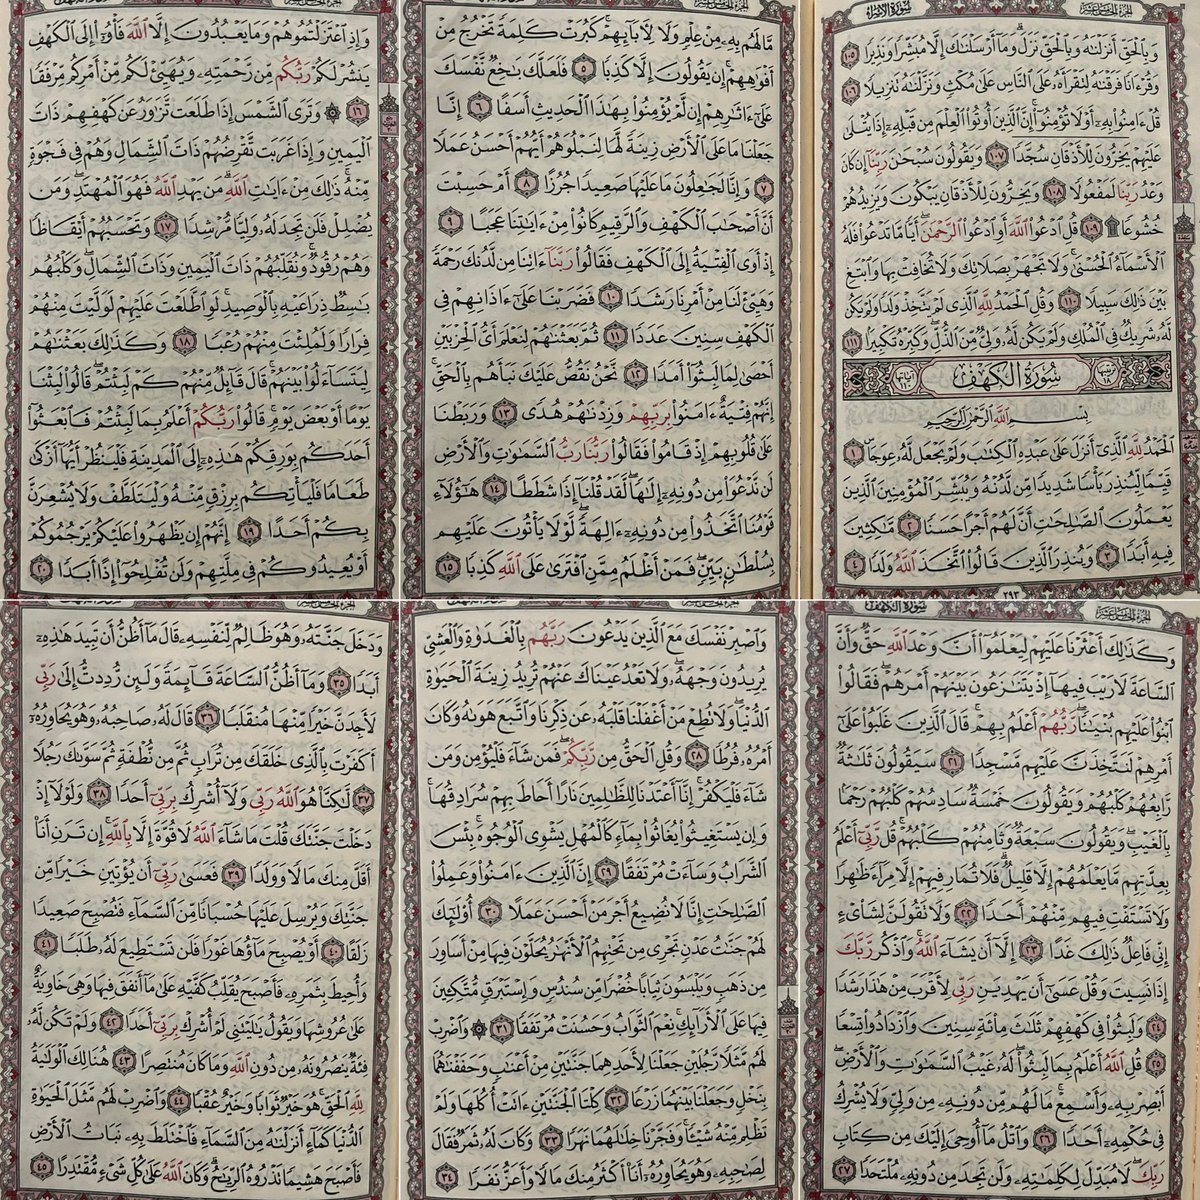 سُورَةُ الإِسْرَاءِ
الجُزْءُ الخَامِسَ عَشَرَ
وَبِالْحَقِّ أَنزَلْنَٰهُ وَبِالْحَقِّ نَزَلَ ۗ وَمَآ أَرْسَلْنَٰكَ إِلَّا مُبَشِّرًا وَنَذِيرًا ١٠٥
وَقُرْءَانًا فَرَقْنَٰهُ لِتَقْرَأَهُۥ عَلَى ٱلنَّاسِ عَلَىٰ مُكْثٍ وَنَزَّلْنَٰهُ تَنزِيلًا ١٠٦
قُلْ ءَامِنُوا۟ بِهِۦٓ أَوْ لَا تُؤْمِنُوٓا۟ ۚ إِنَّ ٱلَّذِينَ أُوتُوا۟ ٱلْعِلْمَ مِن قَبْلِهِۦٓ إِذَا يُتْلَىٰ
عَلَيْهِمْ يَخِرُّونَ لِلْأَذْقَانِ سُجَّدًا ١٠٧ وَيَقُولُونَ سُبْحَٰنَ رَبِّنَآ إِن كَانَ
وَعْدُ رَبِّنَا لَمَفْعُولًا ١٠٨ وَيَخِرُّونَ لِلْأَذْقَانِ يَبْكُونَ وَيَزِيدُهُمْ
خُشُوعًا ۩ ١٠٩ قُلِ ٱدْعُوا۟ ٱللَّهَ أَوِ ٱدْعُوا۟ ٱلرَّحْمَٰنَ ۖ أَيًّا مَّا تَدْعُوا۟ فَلَهُ
ٱلْأَسْمَآءُ ٱلْحُسْنَىٰ ۚ وَلَا تَجْهَرْ بِصَلَاتِكَ وَلَا تُخَافِتْ بِهَا وَٱبْتَغِ
بَيْنَ ذَٰلِكَ سَبِيلًا ١١٠ وَقُلِ ٱلْحَمْدُ لِلَّهِ ٱلَّذِى لَمْ يَتَّخِذْ وَلَدًا وَلَمْ يَكُن
لَّهُۥ شَرِيكٌ فِى ٱلْمُلْكِ وَلَمْ يَكُن لَّهُۥ وَلِىٌّ مِّنَ ٱلذُّلِّ ۖ وَكَبِّرْهُ تَكْبِيرًا ١١١
ترتيبها ١٨ سُورَةُ الْكَهْفِ آياتها ١١٠
بِسْمِ ٱللَّهِ ٱلرَّحْمَٰنِ ٱلرَّحِيمِ
ٱلْحَمْدُ لِلَّهِ ٱلَّذِىٓ أَنزَلَ عَلَىٰ عَبْدِهِ ٱلْكِتَٰبَ وَلَمْ يَجْعَل لَّهُۥ عِوَجَا ۜ ١
قَيِّمًا لِّيُنذِرَ بَأْسًا شَدِيدًا مِّن لَّدُنْهُ وَيُبَشِّرَ ٱلْمُؤْمِنِينَ ٱلَّذِينَ
يَعْمَلُونَ ٱلصَّٰلِحَٰتِ أَنَّ لَهُمْ أَجْرًا حَسَنًا ٢ مَّٰكِثِينَ
فِيهِ أَبَدًا ٣ وَيُنذِرَ ٱلَّذِينَ قَالُوا۟ ٱتَّخَذَ ٱللَّهُ وَلَدًا ٤
٢٩٣
مَّا لَهُم بِهِۦ مِنْ عِلْمٍ وَلَا لِـَٔابَآئِهِمْ ۚ كَبُرَتْ كَلِمَةً تَخْرُجُ مِنْ
أَفْوَٰهِهِمْ ۚ إِن يَقُولُونَ إِلَّا كَذِبًا ٥ فَلَعَلَّكَ بَٰخِعٌ نَّفْسَكَ
عَلَىٰٓ ءَاثَٰرِهِمْ إِن لَّمْ يُؤْمِنُوا۟ بِهَٰذَا ٱلْحَدِيثِ أَسَفًا ٦ إِنَّا
جَعَلْنَا مَا عَلَى ٱلْأَرْضِ زِينَةً لَّهَا لِنَبْلُوَهُمْ أَيُّهُمْ أَحْسَنُ عَمَلًا
٧ وَإِنَّا لَجَٰعِلُونَ مَا عَلَيْهَا صَعِيدًا جُرُزًا ٨ أَمْ حَسِبْتَ
أَنَّ أَصْحَٰبَ ٱلْكَهْفِ وَٱلرَّقِيمِ كَانُوا۟ مِنْ ءَايَٰتِنَا عَجَبًا ٩
إِذْ أَوَى ٱلْفِتْيَةُ إِلَى ٱلْكَهْفِ فَقَالُوا۟ رَبَّنَآ ءَاتِنَا مِن لَّدُنكَ رَحْمَةً
وَهَيِّئْ لَنَا مِنْ أَمْرِنَا رَشَدًا ١٠ فَضَرَبْنَا عَلَىٰٓ ءَاذَانِهِمْ فِى
ٱلْكَهْفِ سِنِينَ عَدَدًا ١١ ثُمَّ بَعَثْنَٰهُمْ لِنَعْلَمَ أَىُّ ٱلْحِزْبَيْنِ
أَحْصَىٰ لِمَا لَبِثُوٓا۟ أَمَدًا ١٢ نَّحْنُ نَقُصُّ عَلَيْكَ نَبَأَهُم بِٱلْحَقِّ ۚ
إِنَّهُمْ فِتْيَةٌ ءَامَنُوا۟ بِرَبِّهِمْ وَزِدْنَٰهُمْ هُدًى ١٣ وَرَبَطْنَا
عَلَىٰ قُلُوبِهِمْ إِذْ قَامُوا۟ فَقَالُوا۟ رَبُّنَا رَبُّ ٱلسَّمَٰوَٰتِ وَٱلْأَرْضِ
لَن نَّدْعُوَا۟ مِن دُونِهِۦٓ إِلَٰهًا ۖ لَّقَدْ قُلْنَآ إِذًا شَطَطًا ١٤ هَٰٓؤُلَآءِ
قَوْمُنَا ٱتَّخَذُوا۟ مِن دُونِهِۦٓ ءَالِهَةً ۖ لَّوْلَا يَأْتُونَ عَلَيْهِم
بِسُلْطَٰنٍۭ بَيِّنٍ ۖ فَمَنْ أَظْلَمُ مِمَّنِ ٱفْتَرَىٰ عَلَى ٱللَّهِ كَذِبًا ١٥
وَإِذِ ٱعْتَزَلْتُمُوهُمْ وَمَا يَعْبُدُونَ إِلَّا ٱللَّهَ فَأْوُۥٓا۟ إِلَى ٱلْكَهْفِ
يَنشُرْ لَكُمْ رَبُّكُم مِّن رَّحْمَتِهِۦ وَيُهَيِّئْ لَكُم مِّنْ أَمْرِكُم مِّرْفَقًا
١٦ ۞ وَتَرَى ٱلشَّمْسَ إِذَا طَلَعَت تَّزَٰوَرُ عَن كَهْفِهِمْ ذَاتَ
ٱلْيَمِينِ وَإِذَا غَرَبَت تَّقْرِضُهُمْ ذَاتَ ٱلشِّمَالِ وَهُمْ فِى فَجْوَةٍ
مِّنْهُ ۚ ذَٰلِكَ مِنْ ءَايَٰتِ ٱللَّهِ ۗ مَن يَهْدِ ٱللَّهُ فَهُوَ ٱلْمُهْتَدِ ۖ وَمَن
يُضْلِلْ فَلَن تَجِدَ لَهُۥ وَلِيًّا مُّرْشِدًا ١٧ وَتَحْسَبُهُمْ أَيْقَاظًا
وَهُمْ رُقُودٌ ۚ وَنُقَلِّبُهُمْ ذَاتَ ٱلْيَمِينِ وَذَاتَ ٱلشِّمَالِ ۖ وَكَلْبُهُم
بَٰسِطٌ ذِرَاعَيْهِ بِٱلْوَصِيدِ ۚ لَوِ ٱطَّلَعْتَ عَلَيْهِمْ لَوَلَّيْتَ مِنْهُمْ
فِرَارًا وَلَمُلِئْتَ مِنْهُمْ رُعْبًا ١٨ وَكَذَٰلِكَ بَعَثْنَٰهُمْ
لِيَتَسَآءَلُوا۟ بَيْنَهُمْ ۚ قَالَ قَآئِلٌ مِّنْهُمْ كَمْ لَبِثْتُمْ ۖ قَالُوا۟ لَبِثْنَا
يَوْمًا أَوْ بَعْضَ يَوْمٍ ۚ قَالُوا۟ رَبُّكُمْ أَعْلَمُ بِمَا لَبِثْتُمْ فَٱبْعَثُوٓا۟
أَحَدَكُم بِوَرِقِكُمْ هَٰذِهِۦٓ إِلَى ٱلْمَدِينَةِ فَلْيَنظُرْ أَيُّهَآ أَزْكَىٰ
طَعَامًا فَلْيَأْتِكُم بِرِزْقٍ مِّنْهُ وَلْيَتَلَطَّفْ وَلَا يُشْعِرَنَّ
بِكُمْ أَحَدًا ١٩ إِنَّهُمْ إِن يَظْهَرُوا۟ عَلَيْكُمْ يَرْجُمُوكُمْ
أَوْ يُعِيدُوكُمْ فِى مِلَّتِهِمْ وَلَن تُفْلِحُوٓا۟ إِذًا أَبَدًا ٢٠
سُورَةُ الكَهْفِ
الجُزْءُ الخَامِسَ عَشَرَ
وَكَذَٰلِكَ أَعْثَرْنَا عَلَيْهِمْ لِيَعْلَمُوٓا۟ أَنَّ وَعْدَ ٱللَّهِ حَقٌّ وَأَنَّ
ٱلسَّاعَةَ لَا رَيْبَ فِيهَآ إِذْ يَتَنَٰزَعُونَ بَيْنَهُمْ أَمْرَهُمْ ۖ فَقَالُوا۟
ٱبْنُوا۟ عَلَيْهِم بُنْيَٰنًا ۖ رَّبُّهُمْ أَعْلَمُ بِهِمْ ۚ قَالَ ٱلَّذِينَ غَلَبُوا۟ عَلَىٰٓ
أَمْرِهِمْ لَنَتَّخِذَنَّ عَلَيْهِم مَّسْجِدًا ٢١ سَيَقُولُونَ ثَلَٰثَةٌ
رَّابِعُهُمْ كَلْبُهُمْ وَيَقُولُونَ خَمْسَةٌ سَادِسُهُمْ كَلْبُهُمْ رَجْمًۢا
بِٱلْغَيْبِ ۖ وَيَقُولُونَ سَبْعَةٌ وَثَامِنُهُمْ كَلْبُهُمْ ۚ قُل رَّبِّىٓ أَعْلَمُ
بِعِدَّتِهِم مَّا يَعْلَمُهُمْ إِلَّا قَلِيلٌ ۗ فَلَا تُمَارِ فِيهِمْ إِلَّا مِرَآءً ظَٰهِرًا
وَلَا تَسْتَفْتِ فِيهِم مِّنْهُمْ أَحَدًا ٢٢ وَلَا تَقُولَنَّ لِشَا۟ىْءٍ
إِنِّى فَاعِلٌ ذَٰلِكَ غَدًا ٢٣ إِلَّآ أَن يَشَآءَ ٱللَّهُ ۚ وَٱذْكُر رَّبَّكَ
إِذَا نَسِيتَ وَقُلْ عَسَىٰٓ أَن يَهْدِيَنِ رَبِّى لِأَقْرَبَ مِنْ هَٰذَا رَشَدًا
٢٤ وَلَبِثُوا۟ فِى كَهْفِهِمْ ثَلَٰثَ مِا۟ئَةٍ سِنِينَ وَٱزْدَادُوا۟ تِسْعًا
٢٥ قُلِ ٱللَّهُ أَعْلَمُ بِمَا لَبِثُوا۟ ۖ لَهُۥ غَيْبُ ٱلسَّمَٰوَٰتِ وَٱلْأَرْضِ ۖ
أَبْصِرْ بِهِۦ وَأَسْمِعْ ۚ مَا لَهُم مِّن دُونِهِۦ مِن وَلِىٍّ وَلَا يُشْرِكُ
فِى حُكْمِهِۦٓ أَحَدًا ٢٦ وَٱتْلُ مَآ أُوحِىَ إِلَيْكَ مِن كِتَابِ
رَبِّكَ ۖ لَا مُبَدِّلَ لِكَلِمَٰتِهِۦ وَلَن تَجِدَ مِن دُونِهِۦ مُلْتَحَدًا ٢٧
وَٱصْبِرْ نَفْسَكَ مَعَ ٱلَّذِينَ يَدْعُونَ رَبَّهُم بِٱلْغَدَوٰةِ وَٱلْعَشِىِّ
يُرِيدُونَ وَجْهَهُۥ ۖ وَلَا تَعْدُ عَيْنَاكَ عَنْهُمْ تُرِيدُ زِينَةَ ٱلْحَيَوٰةِ
ٱلدُّنْيَا ۖ وَلَا تُطِعْ مَنْ أَغْفَلْنَا قَلْبَهُۥ عَن ذِكْرِنَا وَٱتَّبَعَ هَوَىٰهُ وَكَانَ
أَمْرُهُۥ فُرُطًا ٢٨ وَقُلِ ٱلْحَقُّ مِن رَّبِّكُمْ ۖ فَمَن شَآءَ فَلْيُؤْمِن وَمَن
شَآءَ فَلْيَكْفُرْ ۚ إِنَّآ أَعْتَدْنَا لِلظَّٰلِمِينَ نَارًا أَحَاطَ بِهِمْ سُرَادِقُهَا ۚ
وَإِن يَسْتَغِيثُوا۟ يُغَاثُوا۟ بِمَآءٍ كَٱلْمُهْلِ يَشْوِى ٱلْوُجُوهَ ۚ بِئْسَ
ٱلشَّرَابُ وَسَآءَتْ مُرْتَفَقًا ٢٩ إِنَّ ٱلَّذِينَ ءَامَنُوا۟ وَعَمِلُوا۟
ٱلصَّٰلِحَٰتِ إِنَّا لَا نُضِيعُ أَجْرَ مَنْ أَحْسَنَ عَمَلًا ٣٠ أُو۟لَٰٓئِكَ
لَهُمْ جَنَّٰتُ عَدْنٍ تَجْرِى مِن تَحْتِهِمُ ٱلْأَنْهَٰرُ يُحَلَّوْنَ فِيهَا مِنْ أَسَاوِرَ
مِن ذَهَبٍ وَيَلْبَسُونَ ثِيَابًا خُضْرًا مِّن سُندُسٍ وَإِسْتَبْرَقٍ مُّتَّكِـِٔينَ
فِيهَا عَلَى ٱلْأَرَآئِكِ ۚ نِعْمَ ٱلثَّوَابُ وَحَسُنَتْ مُرْتَفَقًا ٣١ ۞ وَٱضْرِبْ
لَهُم مَّثَلًا رَّجُلَيْنِ جَعَلْنَا لِأَحَدِهِمَا جَنَّتَيْنِ مِنْ أَعْنَٰبٍ وَحَفَفْنَٰهُمَا
بِنَخْلٍ وَجَعَلْنَا بَيْنَهُمَا زَرْعًا ٣٢ كِلْتَا ٱلْجَنَّتَيْنِ ءَاتَتْ أُكُلَهَا وَلَمْ
تَظْلِم مِّنْهُ شَيْـًٔا ۚ وَفَجَّرْنَا خِلَٰلَهُمَا نَهَرًا ٣٣ وَكَانَ لَهُۥ ثَمَرٌ فَقَالَ
لِصَٰحِبِهِۦ وَهُوَ يُحَاوِرُهُۥٓ أَنَا۠ أَكْثَرُ مِنكَ مَالًا وَأَعَزُّ نَفَرًا ٣٤
وَدَخَلَ جَنَّتَهُۥ وَهُوَ ظَالِمٌ لِّنَفْسِهِۦ قَالَ مَآ أَظُنُّ أَن تَبِيدَ هَٰذِهِۦٓ
أَبَدًا ٣٥ وَمَآ أَظُنُّ ٱلسَّاعَةَ قَآئِمَةً وَلَئِن رُّدِدتُّ إِلَىٰ رَبِّى
لَأَجِدَنَّ خَيْرًا مِّنْهَا مُنقَلَبًا ٣٦ قَالَ لَهُۥ صَاحِبُهُۥ وَهُوَ يُحَاوِرُهُۥٓ
أَكَفَرْتَ بِٱلَّذِى خَلَقَكَ مِن تُرَابٍ ثُمَّ مِن نُّطْفَةٍ ثُمَّ سَوَّىٰكَ رَجُلًا
٣٧ لَّٰكِنَّا۠ هُوَ ٱللَّهُ رَبِّى وَلَآ أُشْرِكُ بِرَبِّىٓ أَحَدًا ٣٨ وَلَوْلَآ إِذْ
دَخَلْتَ جَنَّتَكَ قُلْتَ مَا شَآءَ ٱللَّهُ لَا قُوَّةَ إِلَّا بِٱللَّهِ ۚ إِن تَرَنِ أَنَا۠
أَقَلَّ مِنكَ مَالًا وَوَلَدًا ٣٩ فَعَسَىٰ رَبِّىٓ أَن يُؤْتِيَنِ خَيْرًا مِّن
جَنَّتِكَ وَيُرْسِلَ عَلَيْهَا حُسْبَانًا مِّنَ ٱلسَّمَآءِ فَتُصْبِحَ صَعِيدًا
زَلَقًا ٤٠ أَوْ يُصْبِحَ مَآؤُهَا غَوْرًا فَلَن تَسْتَطِيعَ لَهُۥ طَلَبًا ٤١
وَأُحِيطَ بِثَمَرِهِۦ فَأَصْبَحَ يُقَلِّبُ كَفَّيْهِ عَلَىٰ مَآ أَنفَقَ فِيهَا وَهِىَ خَاوِيَةٌ
عَلَىٰ عُرُوشِهَا وَيَقُولُ يَٰلَيْتَنِى لَمْ أُشْرِكْ بِرَبِّىٓ أَحَدًا ٤٢ وَلَمْ تَكُن لَّهُۥ
فِئَةٌ يَنصُرُونَهُۥ مِن دُونِ ٱللَّهِ وَمَا كَانَ مُنتَصِرًا ٤٣ هُنَالِكَ ٱلْوَلَٰيَةُ
لِلَّهِ ٱلْحَقِّ ۚ هُوَ خَيْرٌ ثَوَابًا وَخَيْرٌ عُقْبًا ٤٤ وَٱضْرِبْ لَهُم مَّثَلَ ٱلْحَيَوٰةِ
ٱلدُّنْيَا كَمَآءٍ أَنزَلْنَٰهُ مِنَ ٱلسَّمَآءِ فَٱخْتَلَطَ بِهِۦ نَبَاتُ ٱلْأَرْضِ
فَأَصْبَحَ هَشِيمًا تَذْرُوهُ ٱلرِّيَٰحُ ۗ وَكَانَ ٱللَّهُ عَلَىٰ كُلِّ شَىْءٍ مُّقْتَدِرًا ٤٥